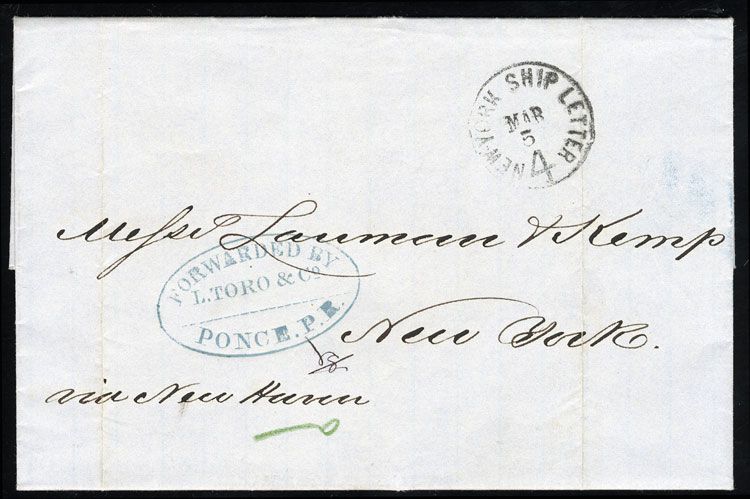 NEW-YORK SHIP LETTER
MAR
5
4
Messrs Lanman & Kemp
FORWARDED BY
L. TORO & Co.
PONCE, P.R.
New York.
via New Haven